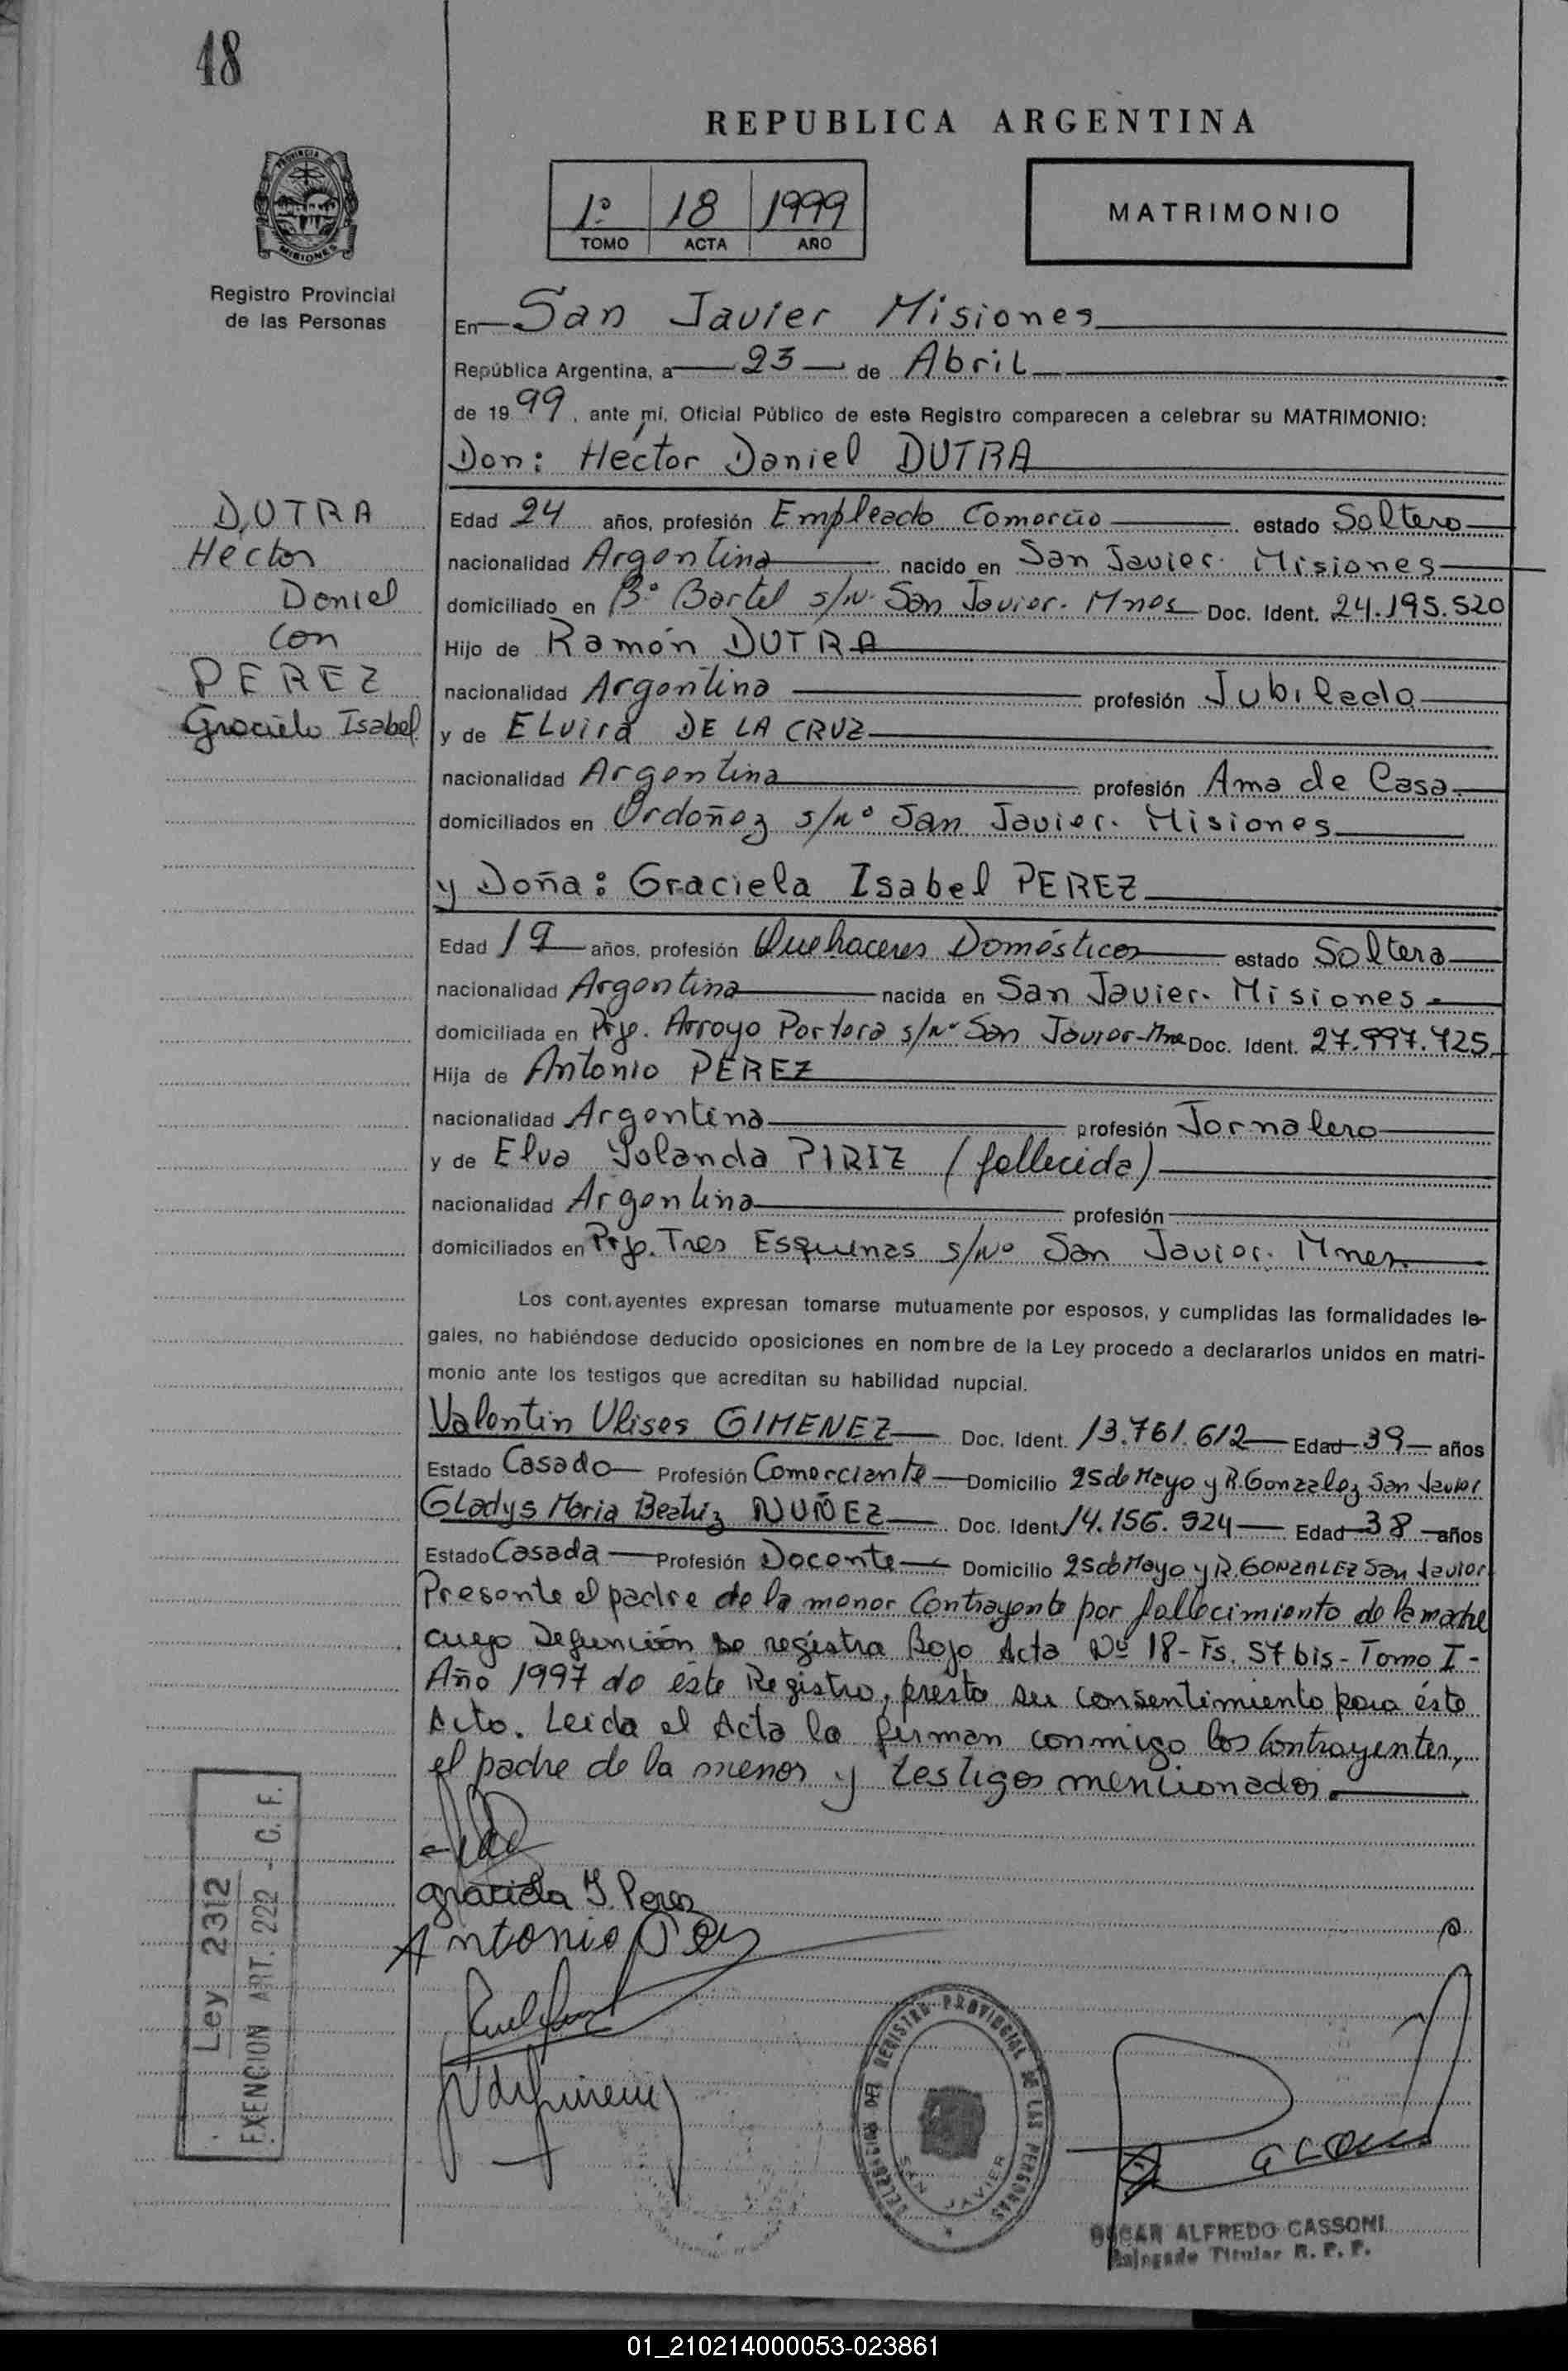 18
REPUBLICA ARGENTINA
PROVINCIA DE
MISIONES
1º 18 1999
TOMO ACTA AÑO
MATRIMONIO
Registro Provincial
de las Personas
En San Javier Misiones
República Argentina, a 23 de Abril
de 1999, ante mí, Oficial Público de este Registro comparecen a celebrar su MATRIMONIO:
Don: Héctor Daniel DUTRA
DUTRA
Héctor
Daniel
con
PEREZ
Graciela Isabel
Edad 24 años, profesión Empleado Comercio estado Soltero
nacionalidad Argentina nacido en San Javier. Misiones
domiciliado en Bº Bartel s/Nº San Javier. Mnes Doc. Ident. 24.195.520
Hijo de Ramón DUTRA
nacionalidad Argentina profesión Jubilado
y de ELvira DE LA CRUZ
nacionalidad Argentina profesión Ama de Casa
domiciliados en Ordoñez s/nº San Javier. Misiones
y Doña: Graciela Isabel PEREZ
Edad 19 años, profesión Quehaceres Domésticos estado Soltera
nacionalidad Argentina nacida en San Javier. Misiones
domiciliada en Prje. Arroyo Portera s/Nº San Javier-Mnes Doc. Ident. 27.997.425
Hija de Antonio PEREZ
nacionalidad Argentina profesión Jornalero
y de Elva Yolanda PIRIZ (fallecida)
nacionalidad Argentina profesión
domiciliados en Prje. Tres Esquinas s/Nº San Javier. Mnes.
Los contrayentes expresan tomarse mutuamente por esposos, y cumplidas las formalidades le-
gales, no habiéndose deducido oposiciones en nombre de la Ley procedo a declararlos unidos en matri-
monio ante los testigos que acreditan su habilidad nupcial.
Valentin Ulises GIMENEZ Doc. Ident. 13.761.612 Edad 39 años
Estado Casado Profesión Comerciante Domicilio 25 de Mayo y R. Gonzalez San Javier
GLadys Maria Beatriz NUÑEZ Doc. Ident. 14.156.924 Edad 38 años
Estado Casada Profesión Docente Domicilio 25 de Mayo y R. GONZALEZ San Javier
Presente el padre de la menor Contrayente por fallecimiento de la madre
cuya Defunción se registra Bajo Acta Nº 18 - Fs. 57 bis - Tomo I -
Año 1997 de éste Registro, presta su consentimiento para éste
Acto. Leida el Acta la firman conmigo los contrayentes,
el padre de la menor y testigos mencionados.
Graciela I. Perez
Antonio Perez
Ley 2312
EXENCION ART. 222 - C. F.
REGISTRO PROVINCIAL DE LAS PERSONAS
SAN JAVIER
OSCAR ALFREDO CASSONI
Delegado Titular R. P. P.
01_210214000053-023861